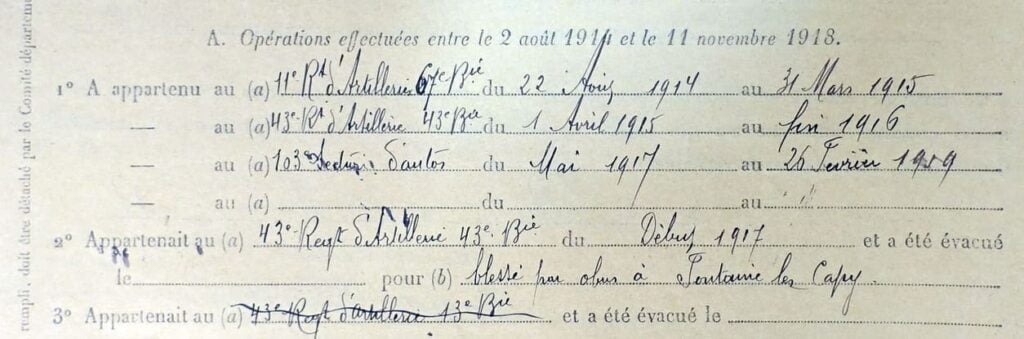 A. Opérations effectuées entre le 2 août 1914 et le 11 novembre 1918.
1° A appartenu au (a) 11e Rt d'Artillerie 67e Bie du 22 Août 1914 au 31 Mars 1915
— au (a) 43e Rt d'Artillerie 43e Bie du 1 Avril 1915 au fin 1916
— au (a) 103e Section d'autos du Mai 1917 au 26 Fevrier 1919
— au (a) du au "
2° Appartenait au (a) 43e Regt d'Artillerie 43e Bie du Début 1917 et a été évacué
le pour (b) blessé par obus à Fontaine les Capy.
3° Appartenait au (a) 43e Regt d'artillerie 13e Bie et a été évacué le
rempli, doit être détaché par le Comité départeme